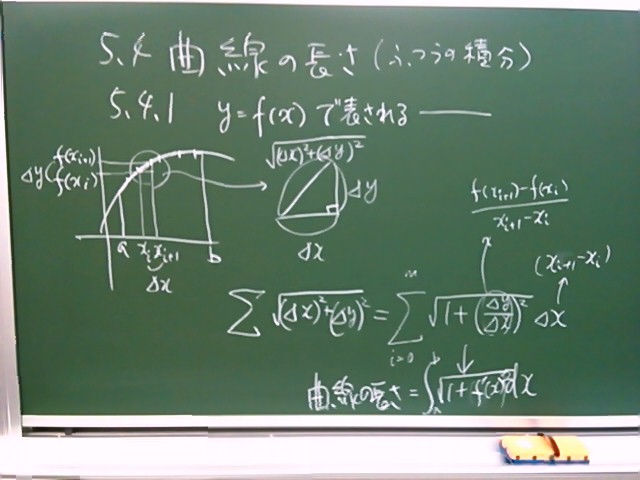 5.4 曲線の長さ(ふつうの積分)
5.4.1 y=f(x)で表される ―――
f(x_{i+1})
Δy
f(x_i)
a x_i x_{i+1} b
Δx
√(Δx)²+(Δy)²
Δy
Δx
f(x_{i+1})-f(x_i)
x_{i+1}-x_i
(x_{i+1}-x_i)
∑ √(Δx)²+(Δy)² = ∑_{i=0}^{n} √1+(Δy/Δx)² Δx
曲線の長さ = ∫_a^b √1+f'(x)² dx